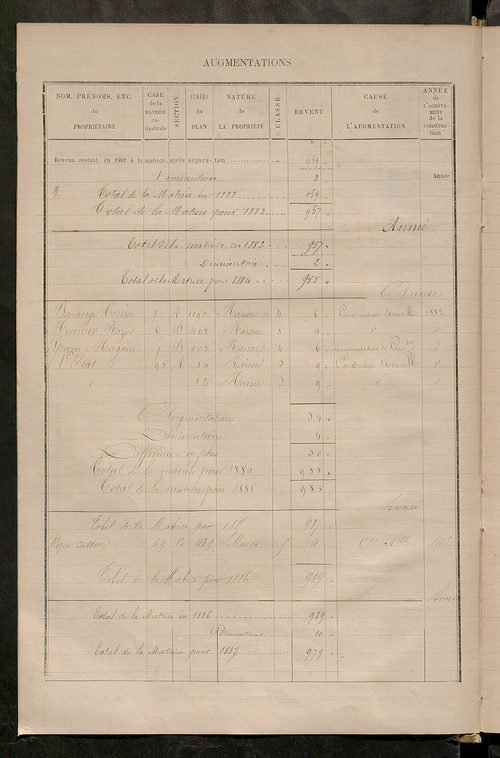 AUGMENTATIONS
NOM, PRÉNOMS, ETC. du PROPRIÉTAIRE | CASE de la MATRICE cadastrale | SECTION | NUMÉRO du PLAN | NATURE de LA PROPRIÉTÉ | CLASSE | REVENU | CAUSE de L'AUGMENTATION | ANNÉE de L'ACHÈVEMENT de la construction
Revenu restant, en 1882 à la matrice, après séparation 959
Diminution 2 Année
Total de la Matrice en 1882 959
Total de la Matrice pour 1883 957
Année
Total de la matrice en 1883 957
Diminution 2
Total de la Matrice pour 1884 955
Année
1 Maison 4 6 Construction Nouvelle 1882
6 408 Maison 5 4 d°
7 103 Maison 4 6
l'État 95 54 Maison 3 9 Construction Nouvelle
" 13 Maison 3 9 d°
Augmentations 34
Diminutions 4
Différence en plus 30
Total de la matrice pour 1884 955
Total de la matrice pour 1885 985
Année
Total de la Matrice pour 985
69 Maison 5 4
Total de la Matrice pour 1886 989
Année
Total de la Matrice en 1886 989
Diminutions 10
Total de la Matrice pour 1887 979